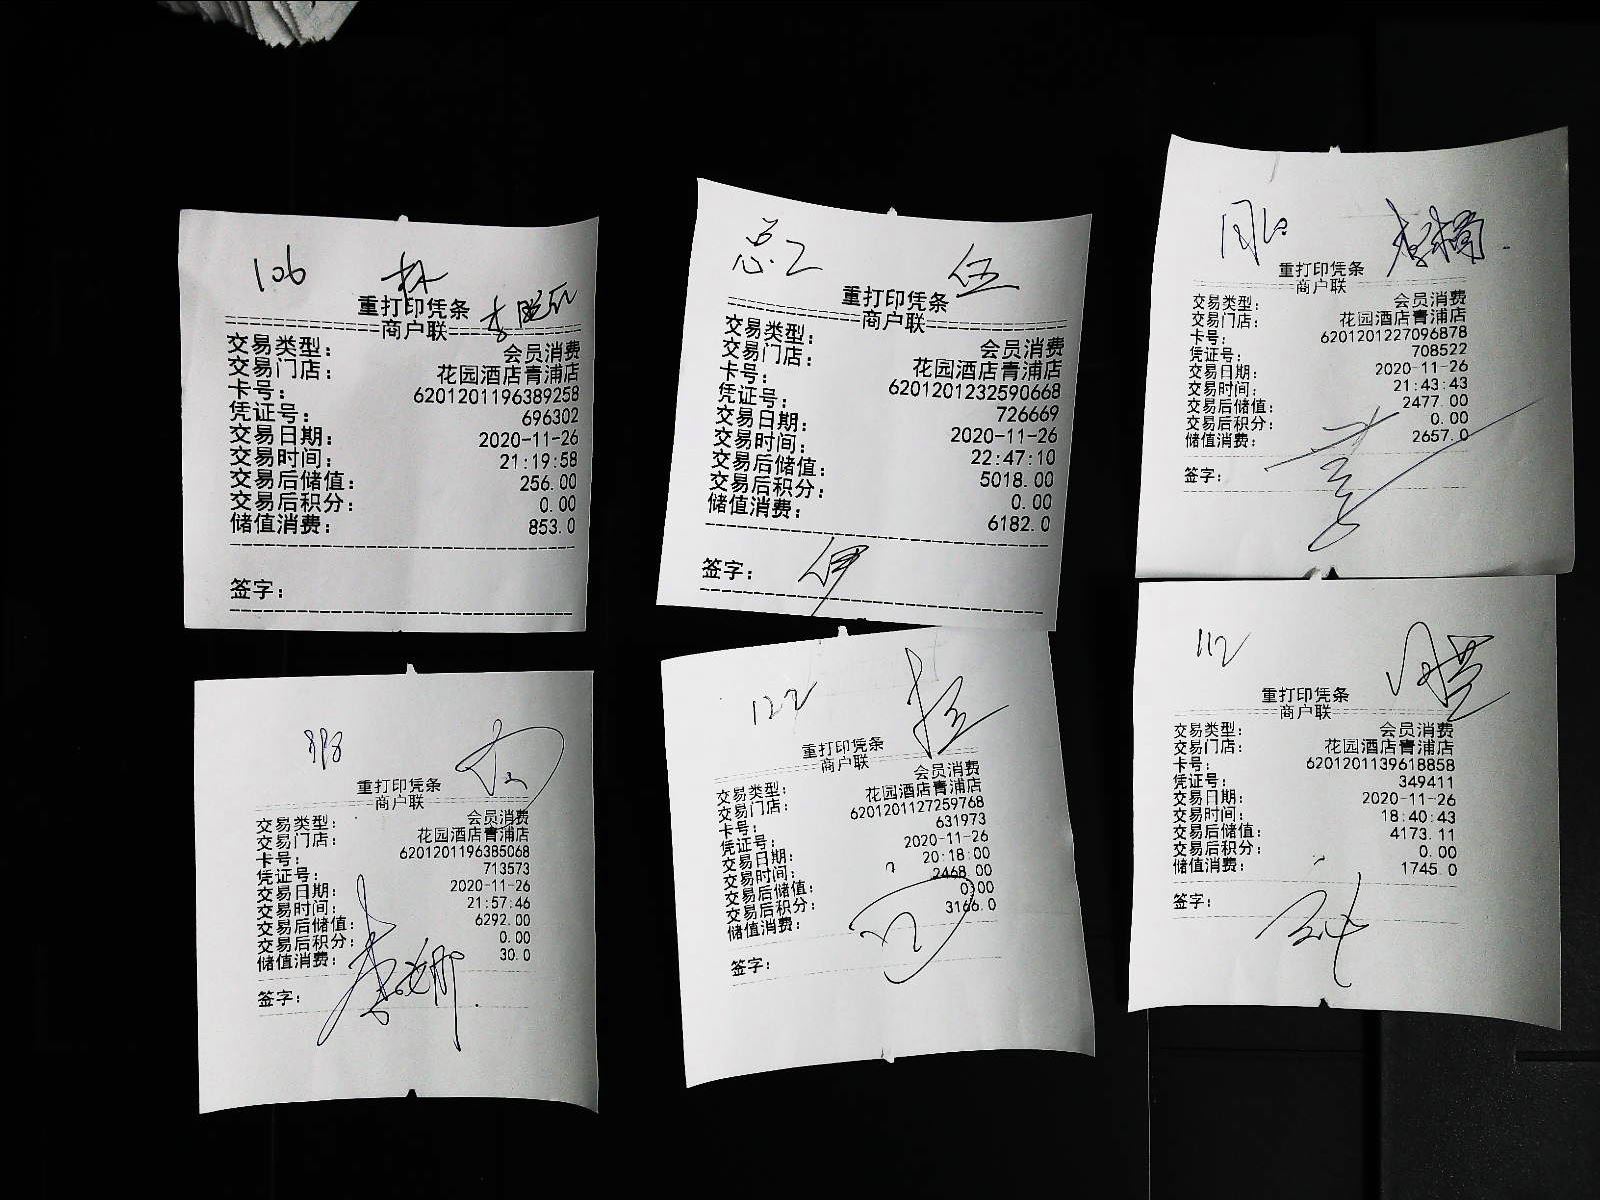 106
重打印凭条
商户联
交易类型: 会员消费
交易门店: 花园酒店青浦店
卡号: 6201201196389258
凭证号: 696302
交易日期: 2020-11-26
交易时间: 21:19:58
交易后储值: 256.00
交易后积分: 0.00
储值消费: 853.0
签字:
伍
重打印凭条
商户联
交易类型: 会员消费
交易门店: 花园酒店青浦店
卡号: 6201201232590668
凭证号: 726669
交易日期: 2020-11-26
交易时间: 22:47:10
交易后储值: 5018.00
交易后积分: 0.00
储值消费: 6182.0
签字:
重打印凭条
商户联
交易类型: 会员消费
交易门店: 花园酒店青浦店
卡号: 6201201227096878
凭证号: 708522
交易日期: 2020-11-26
交易时间: 21:43:43
交易后储值: 2477.00
交易后积分: 0.00
储值消费: 2657.0
签字:
重打印凭条
商户联
交易类型: 会员消费
交易门店: 花园酒店青浦店
卡号: 6201201196385068
凭证号: 713573
交易日期: 2020-11-26
交易时间: 21:57:46
交易后储值: 6292.00
交易后积分: 0.00
储值消费: 30.0
签字:
122
重打印凭条
商户联
交易类型: 会员消费
交易门店: 花园酒店青浦店
卡号: 6201201127259768
凭证号: 631973
交易日期: 2020-11-26
交易时间: 20:18:00
交易后储值: 2468.00
交易后积分: 0.00
储值消费: 3166.0
签字:
112
重打印凭条
商户联
交易类型: 会员消费
交易门店: 花园酒店青浦店
卡号: 6201201139618858
凭证号: 349411
交易日期: 2020-11-26
交易时间: 18:40:43
交易后储值: 4173.11
交易后积分: 0.00
储值消费: 1745.0
签字: